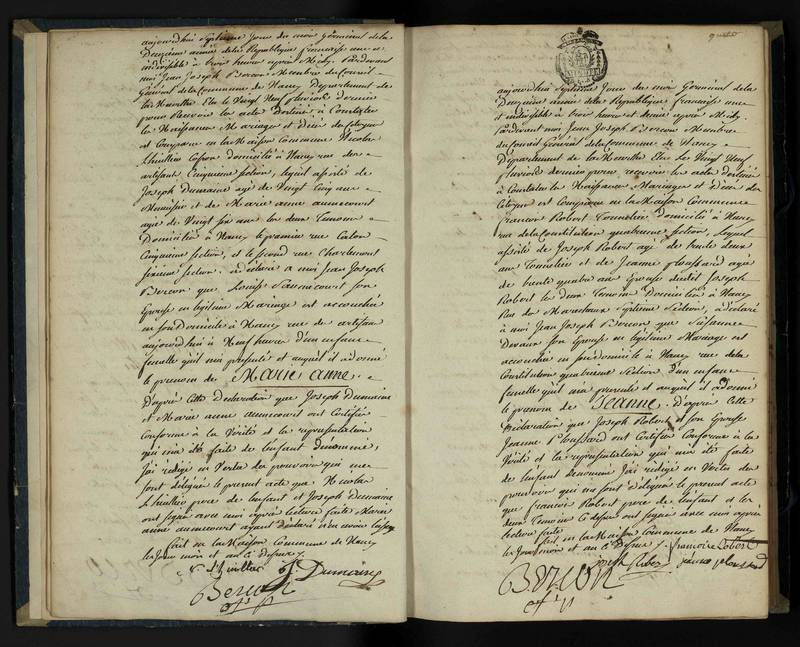 aujourdhui Septieme Jour du mois Germinal de la
Deuxieme année de la Republique francaise une et
indivisible à trois heures après Midy. Pardevant
moi Jean Joseph Bercon Membre du Conseil
Général de la Commune de Nancy Departement de
la Meurthe Elu le Vingt Neuf pluviose dernier
pour Recevoir les actes Destinés à Constater
les Naissances Mariages et Décès des Citoyens
est Comparu en la Maison Commune Nicolas
Lhuillier domicilié à Nancy rue des
artisans Cinquieme Section, lequel assisté de
Joseph Dumaine agé de Vingt Cinq ans
Menuisier et de Marie anne aumecourt
agée de Vingt ans les deux Temoins
Domiciliés à Nancy le premier rue
Cinquieme Section, et le Second rue Charlemont
Section. a déclaré a moi Jean Joseph
Bercon que Louise son
Epouse en legitime Mariage est accouchée
en son Domicile à Nancy rue des artisans
aujourdhui à Neuf heures d'un enfant
femelle quil m'a presenté et auquel il a donné
le prenom de Marie anne.
D'après cette Declaration que Joseph Dumaine
et Marie anne aumecourt ont Certifiée
Conforme à la Verité et la representation
qui m'a été faite de l'enfant Denommé,
J'ai redigé en Vertu des pouvoirs qui me
sont délégués le present acte que Nicolas
Lhuillier pere de l'enfant et Joseph Dumaine
ont signé avec moi après lecture faite Marie
anne aumecourt ayant déclaré
Fait en la Maison Commune de Nancy
les Jour mois et an Ci Dessus
n. Lhuillier J. Dumaine
Bercon
off. p.
aujourdhui Septieme Jour du mois Germinal de la
Deuxieme année de la Republique française une
et indivisible à trois heures et demie après Midy.
Pardevant moi Jean Joseph Bercon Membre
du Conseil Général de la Commune de Nancy
Departement de la Meurthe Elu le Vingt Neuf
pluviose dernier pour recevoir les actes destinés
à Constater les Naissances Mariages et Décès des
Citoyens est Comparu en la Maison Commune
francois Robert Tonnelier domicilié à Nancy
rue de la Constitution quatrieme Section, lequel
assisté de Joseph Robert agé de trente deux
ans Tonnelier et de Jeanne ploussard agée
de trente quatre ans Epouse dudit Joseph
Robert les deux Temoins Domiciliés à Nancy
Rue des Marechaux Septieme Section, a déclaré
à moi Jean Joseph Bercon que
son Epouse en legitime Mariage est
accouchée en son domicile à Nancy rue de la
Constitution quatrieme Section d'un enfant
femelle quil m'a presenté et auquel il a donné
le prenom de Jeanne. D'après cette
Déclaration que Joseph Robert et son Epouse
Jeanne Ploussard ont Certifiée Conforme à la
Verité et la representation qui m'a été faite
de l'enfant Denommé J'ai redigé en Vertu des
pouvoirs qui me sont délégués le present acte
que francois Robert pere de l'enfant et les
deux Temoins Ci dessus ont signé avec moi après
lecture faite
fait en la Maison Commune de Nancy
les Jour mois et an Ci Dessus francois Robert
joseph Robert jeanne ploussard
Bercon
off. p.